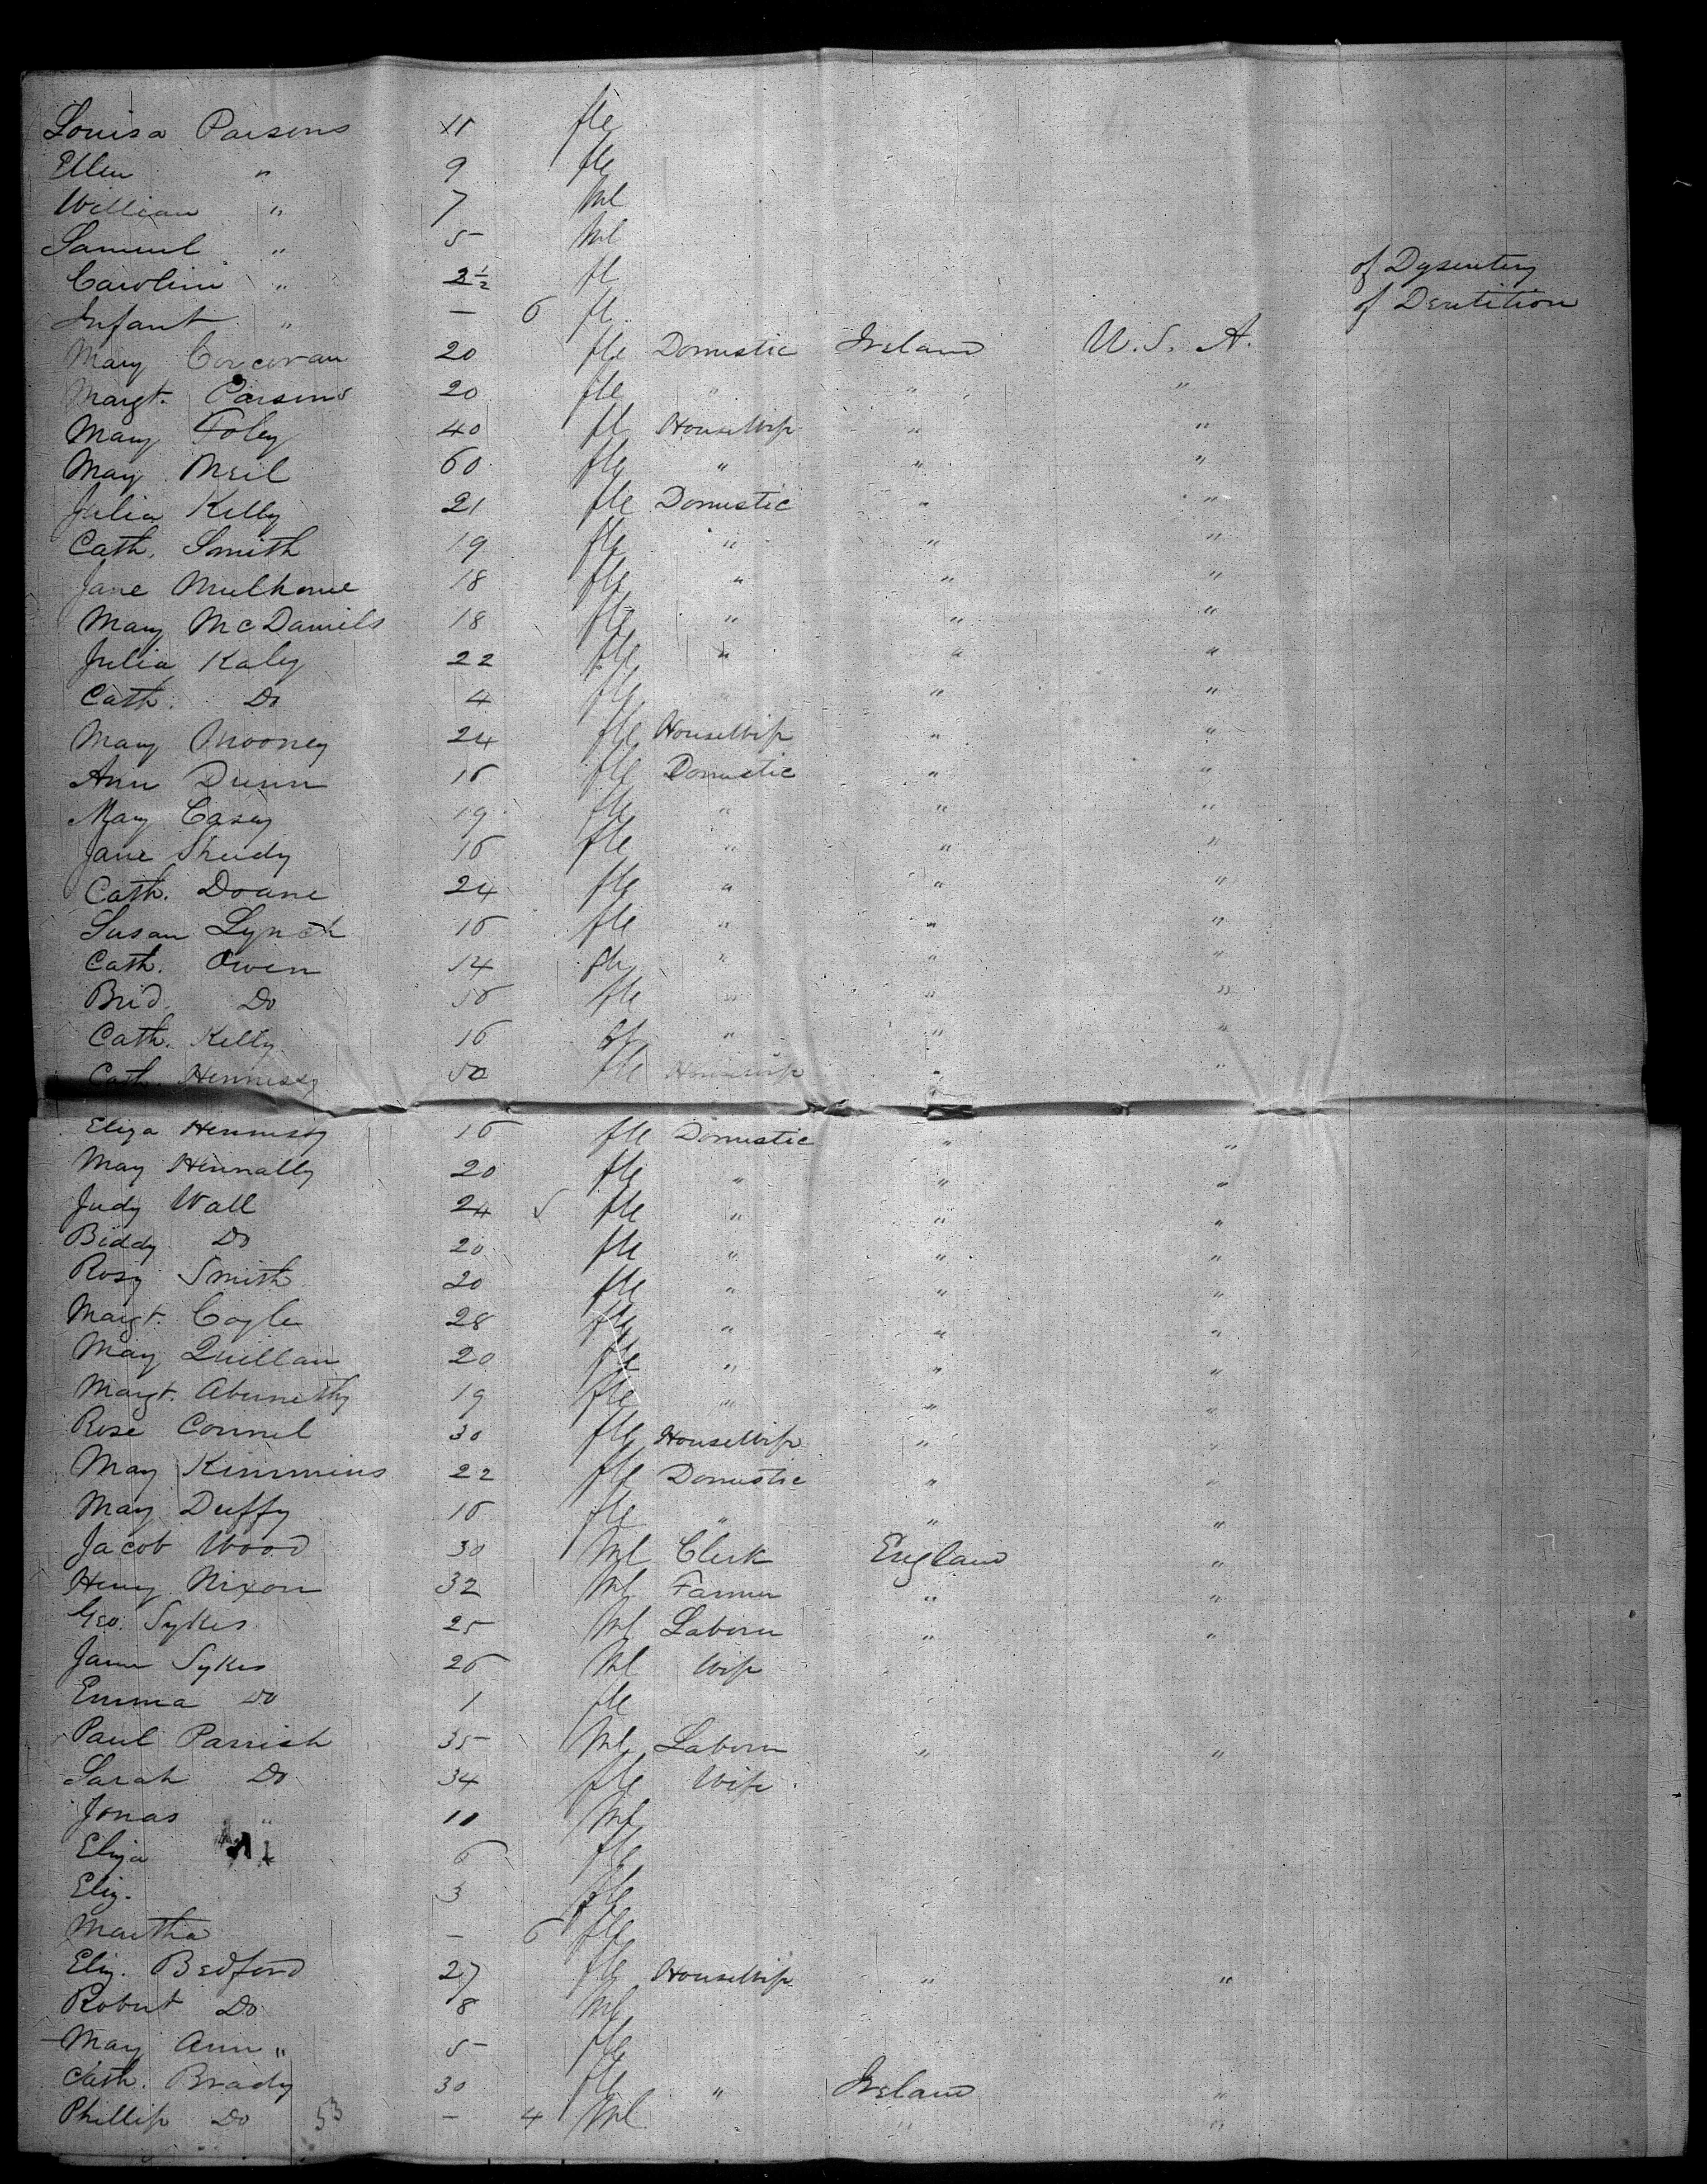 Louisa Parsons 11 fle
Ellen " 9 fle
William " 7 Ml
Samuel " 5 Ml
Caroline " 2½ fl of Dysentery
Infant " — 6 fl of Dentition
Mary Corcoran 20 fle Domestic Ireland U.S.A.
Margt. Parsons 20 fle " " "
Mary Foley 40 fl HouseWife " "
Mary Neil 60 fle " " "
Julia Kelly 21 fle Domestic " "
Cath. Smith 19 fle " " "
Jane 18 fle " " "
Mary McDaniels 18 fle " " "
Julia Kaley 22 fle " " "
Cath. Do 4 fle " " "
Mary Mooney 24 fle HouseWife " "
Ann Dunn 16 fle Domestic " "
Mary Casey 19 fle " " "
Jane 16 fle " " "
Cath. Doane 24 fle " " "
Susan Lynch 16 fle " " "
Cath. Owen 14 fle " " "
Brid. Do " " "
Cath. Kelly 16 " " "
Cath. Hennessy 50 fle HouseWife " "
Eliza Hennesy 16 fle Domestic " "
Mary 20 fle " " "
Judy Wall 24 fle " " "
Biddy Do 20 fle " " "
Rosy Smith 20 fle " " "
Margt. Coyle 28 fle " " "
Mary Quillan 20 fle " " "
Margt. Abernethy 19 fle " " "
Rose Connel 30 fle HouseWife " "
Mary Kimmins 22 fle Domestic " "
Mary Duffy 16 fle " " "
Jacob Wood 30 Ml Clerk England "
Henry Nixon 32 Ml Farmer " "
Geo. Sykes 25 Ml Laborer " "
Jane Sykes 26 Ml Wife
Emma Do 1 fle
Paul Parrish 35 Ml Laborer " "
Sarah Do 34 fle Wife
Jonas " 11 Ml
Eliza 6 fle
Eliz. 3 fle
Martha — 6 fle
Eliz. Bedford 27 fle HouseWife " "
Robert Do 8 Ml
Mary Ann " 5 fle
Cath. Brady 30 fle " Ireland "
Phillip Do 53 — 4 Ml " "